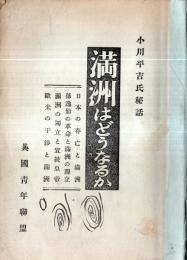 小川平吉氏秘話
満洲はどうなるか
日本の存亡と満洲
孫逸仙の革命と満洲の独立
満洲の独立と宣統皇帝
欧米の干渉と満洲
興國青年聯盟